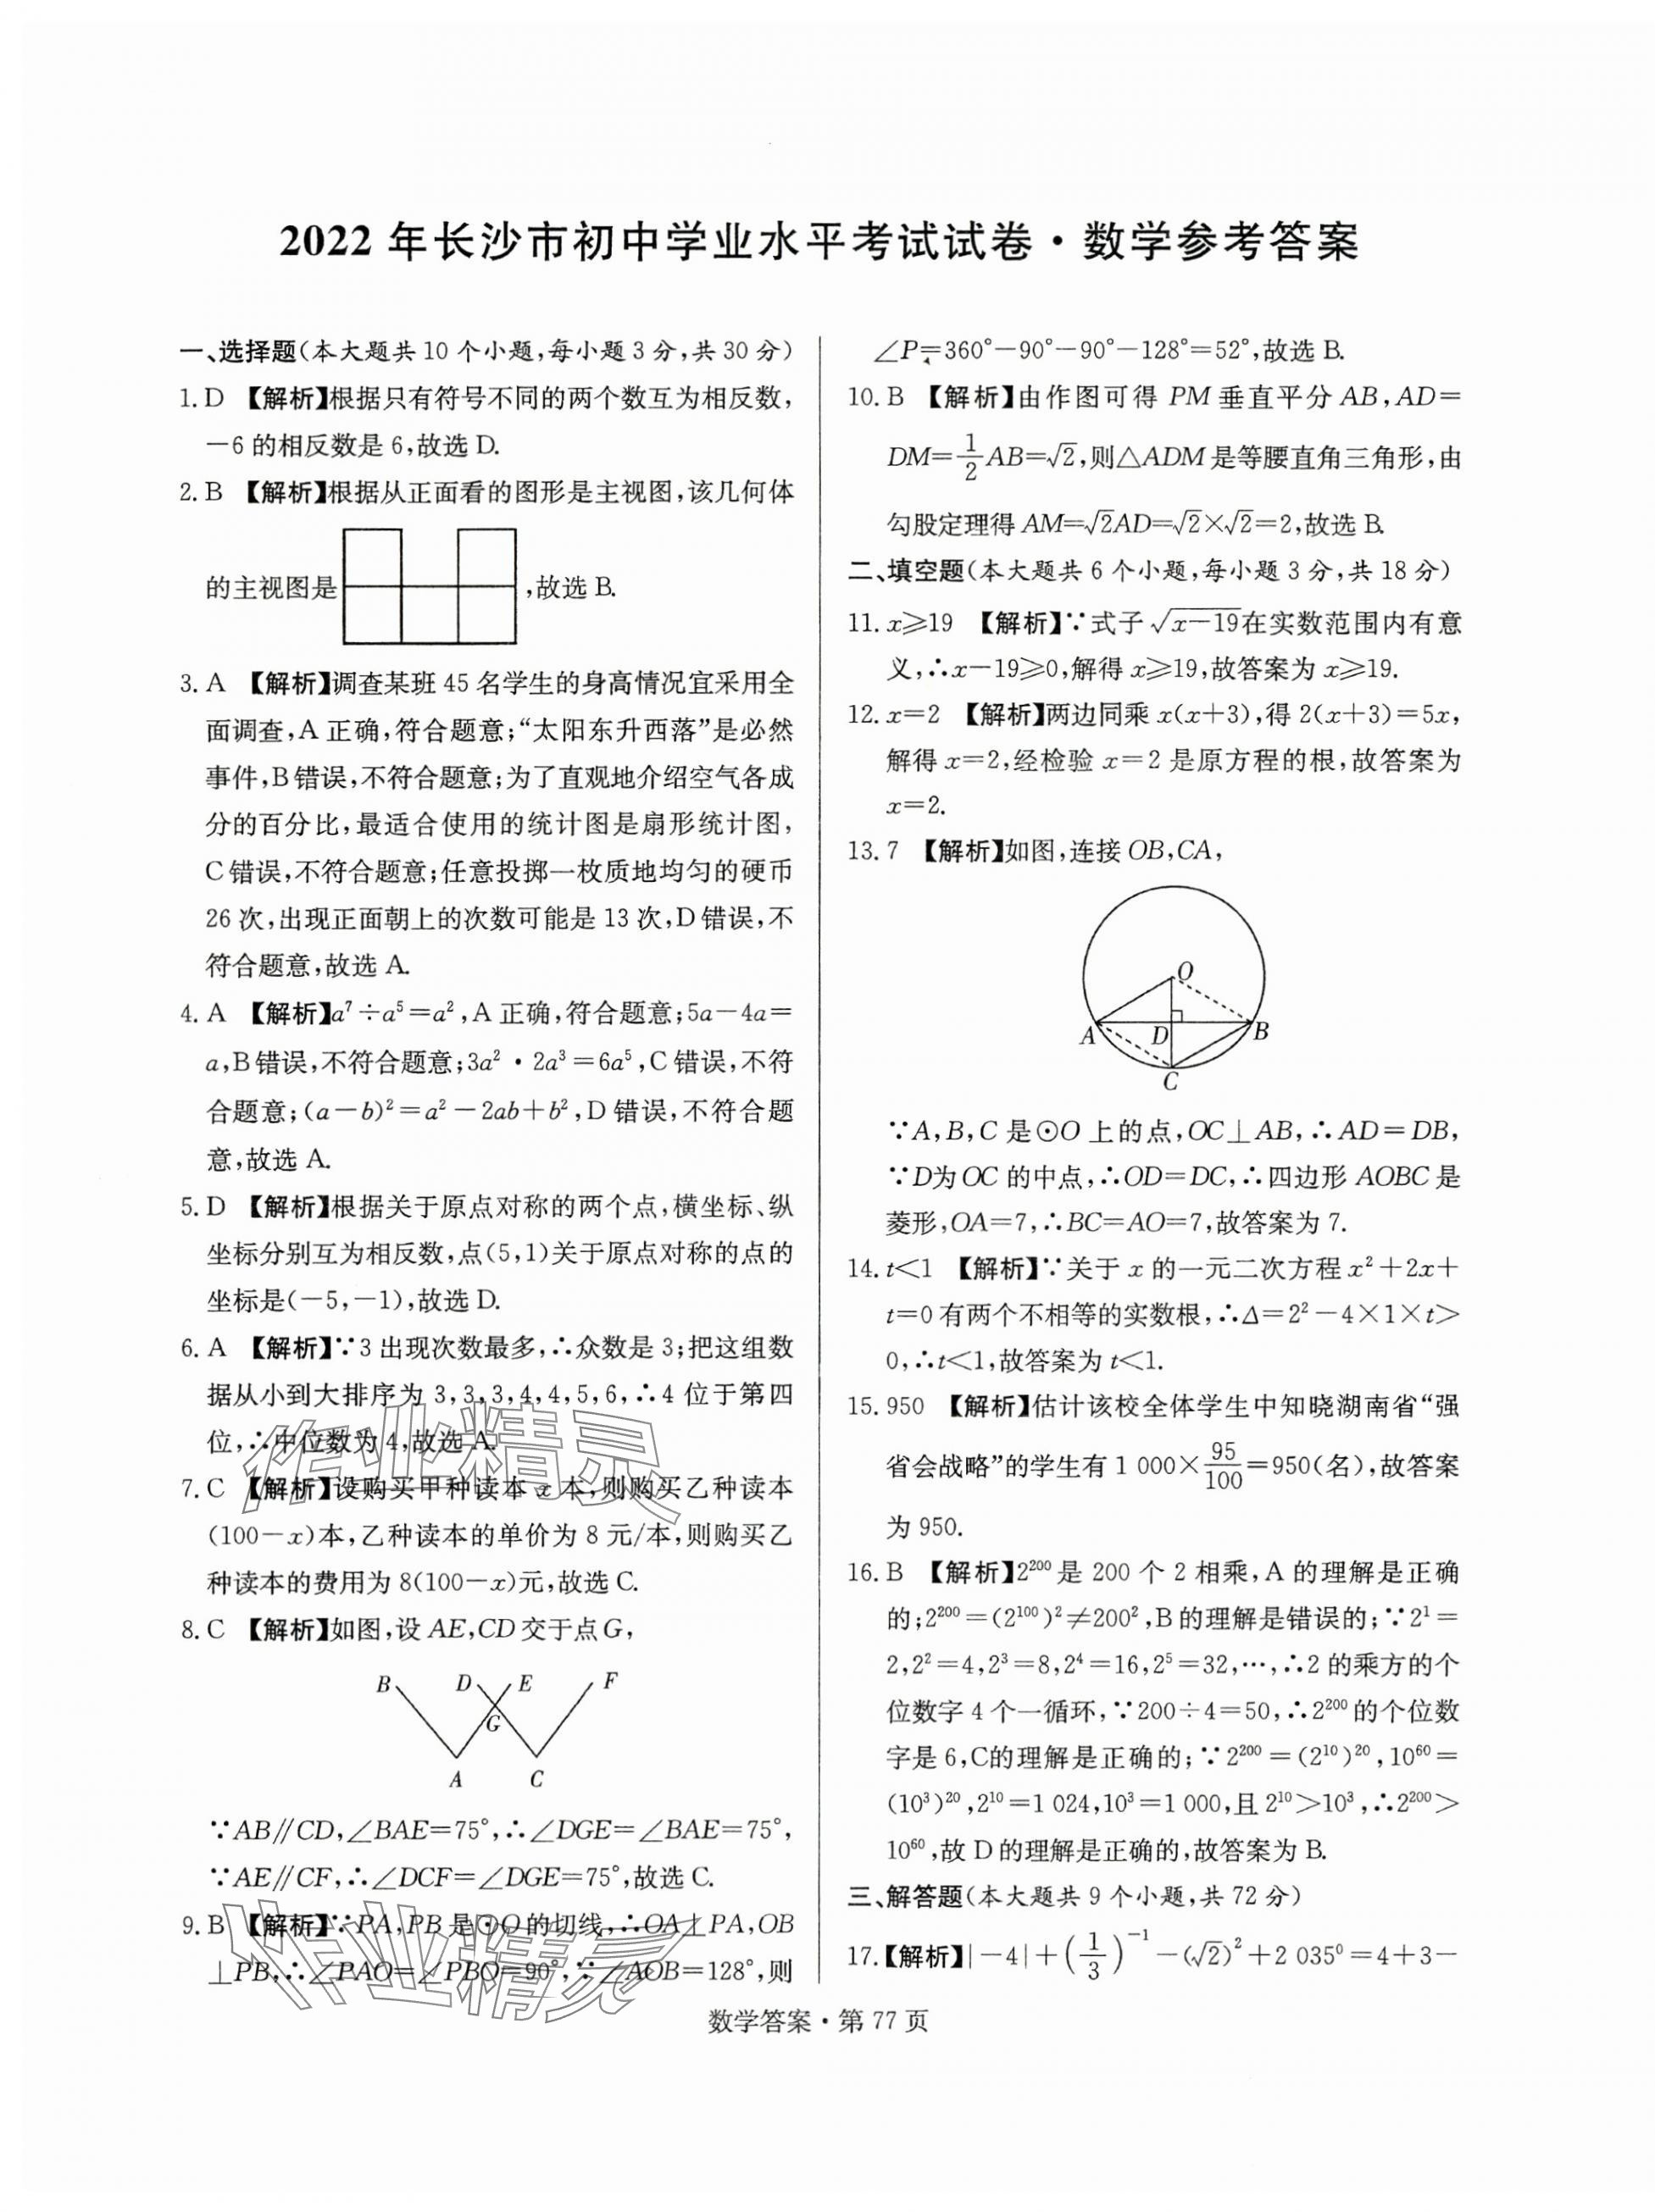 2022 年长沙市初中学业水平考试试卷·数学参考答案
一、选择题(本大题共 10 个小题,每小题 3 分,共 30 分)
1. D 【解析】根据只有符号不同的两个数互为相反数,
－6 的相反数是 6,故选 D.
2. B 【解析】根据从正面看的图形是主视图,该几何体
的主视图是 ,故选 B.
3. A 【解析】调查某班 45 名学生的身高情况宜采用全
面调查,A 正确,符合题意;“太阳东升西落”是必然
事件,B 错误,不符合题意;为了直观地介绍空气各成
分的百分比,最适合使用的统计图是扇形统计图,
C 错误,不符合题意;任意投掷一枚质地均匀的硬币
26 次,出现正面朝上的次数可能是 13 次,D 错误,不
符合题意,故选 A.
4. A 【解析】a⁷÷a⁵=a²,A 正确,符合题意;5a－4a=
a,B 错误,不符合题意;3a²·2a³=6a⁵,C 错误,不符
合题意;(a－b)²=a²－2ab+b²,D 错误,不符合题
意,故选 A.
5. D 【解析】根据关于原点对称的两个点,横坐标、纵
坐标分别互为相反数,点(5,1)关于原点对称的点的
坐标是(－5,－1),故选 D.
6. A 【解析】∵3 出现次数最多,∴众数是 3;把这组数
据从小到大排序为 3,3,3,4,4,5,6,∴4 位于第四
位,∴中位数为 4,故选 A.
7. C 【解析】设购买甲种读本 x 本,则购买乙种读本
(100－x)本,乙种读本的单价为 8 元/本,则购买乙
种读本的费用为 8(100－x)元,故选 C.
8. C 【解析】如图,设 AE,CD 交于点 G,
B D E F
G
A C
∵AB∥CD,∠BAE=75°,∴∠DGE=∠BAE=75°,
∵AE∥CF,∴∠DCF=∠DGE=75°,故选 C.
9. B 【解析】∵PA,PB 是⊙O 的切线,∴OA⊥PA,OB
⊥PB,∴∠PAO=∠PBO=90°,∵∠AOB=128°,则
∠P=360°－90°－90°－128°=52°,故选 B.
10. B 【解析】由作图可得 PM 垂直平分 AB,AD=
DM=1/2 AB=√2,则△ADM 是等腰直角三角形,由
勾股定理得 AM=√2AD=√2×√2=2,故选 B.
二、填空题(本大题共 6 个小题,每小题 3 分,共 18 分)
11. x≥19 【解析】∵式子√(x－19)在实数范围内有意
义,∴x－19≥0,解得 x≥19,故答案为 x≥19.
12. x=2 【解析】两边同乘 x(x+3),得 2(x+3)=5x,
解得 x=2,经检验 x=2 是原方程的根,故答案为
x=2.
13. 7 【解析】如图,连接 OB,CA,
O
A D B
C
∵A,B,C 是⊙O 上的点,OC⊥AB,∴AD=DB,
∵D为 OC 的中点,∴OD=DC,∴四边形 AOBC 是
菱形,OA=7,∴BC=AO=7,故答案为 7.
14. t<1 【解析】∵关于 x 的一元二次方程 x²+2x+
t=0 有两个不相等的实数根,∴Δ=2²－4×1×t>
0,∴t<1,故答案为 t<1.
15. 950 【解析】估计该校全体学生中知晓湖南省“强
省会战略”的学生有 1 000×95/100=950(名),故答案
为 950.
16. B 【解析】2²⁰⁰是 200 个 2 相乘,A 的理解是正确
的;2²⁰⁰=(2¹⁰⁰)²≠200²,B 的理解是错误的;∵2¹=
2,2²=4,2³=8,2⁴=16,2⁵=32,…,∴2 的乘方的个
位数字 4 个一循环,∵200÷4=50,∴2²⁰⁰的个位数
字是 6,C的理解是正确的;∵2²⁰⁰=(2¹⁰)²⁰,10⁶⁰=
(10³)²⁰,2¹⁰=1 024,10³=1 000,且 2¹⁰>10³,∴2²⁰⁰>
10⁶⁰,故 D 的理解是正确的,故答案为 B.
三、解答题(本大题共 9 个小题,共 72 分)
17.【解析】|－4|+(1/3)⁻¹－(√2)²+2 035⁰=4+3－
数学答案·第 77 页
作业精灵
作业精灵